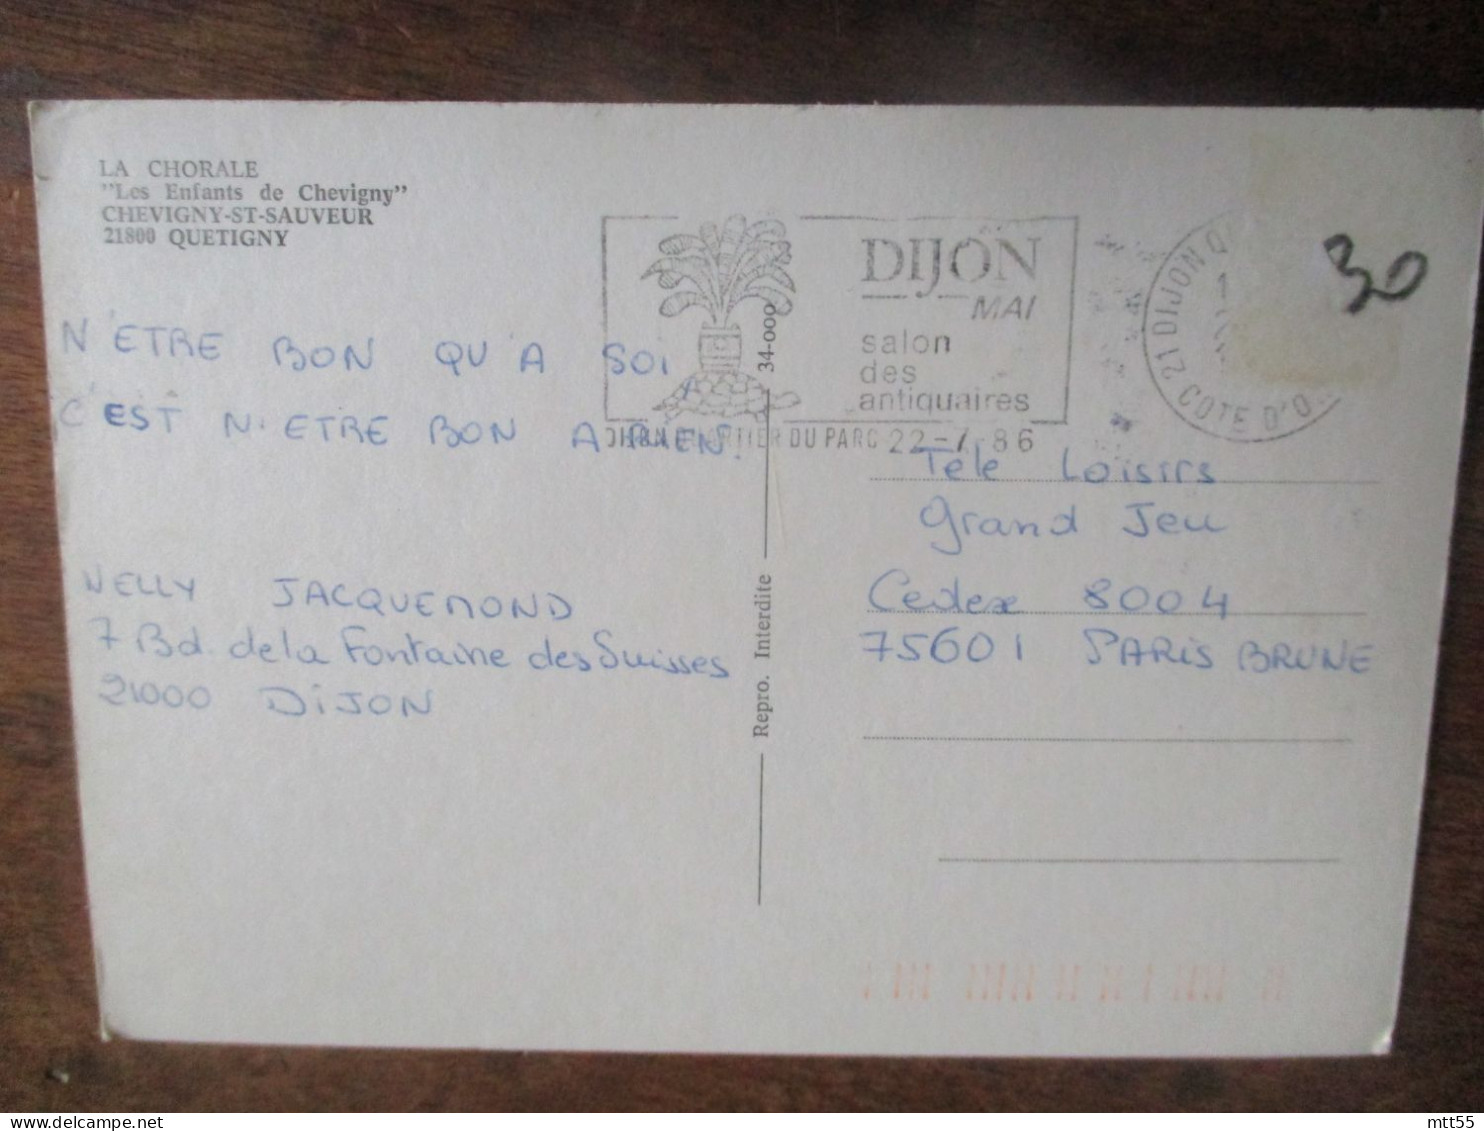 LA CHORALE
"Les Enfants de Chevigny"
CHEVIGNY-ST-SAUVEUR
21800 QUETIGNY
N'ETRE BON QU'A SOI,
C'EST N'ETRE BON A RIEN.
NELLY JACQUEMOND
7 Bd. de la Fontaine des Suisses
21000 DIJON
Repro. Interdite
34-000
DIJON
MAI
salon
des
antiquaires
DIJON QUARTIER DU PARC 22-7-86
21 DIJON
COTE D'O
30
Télé Loisirs
Grand Jeu
Cedex 8004
75601 PARIS BRUNE
mtt55